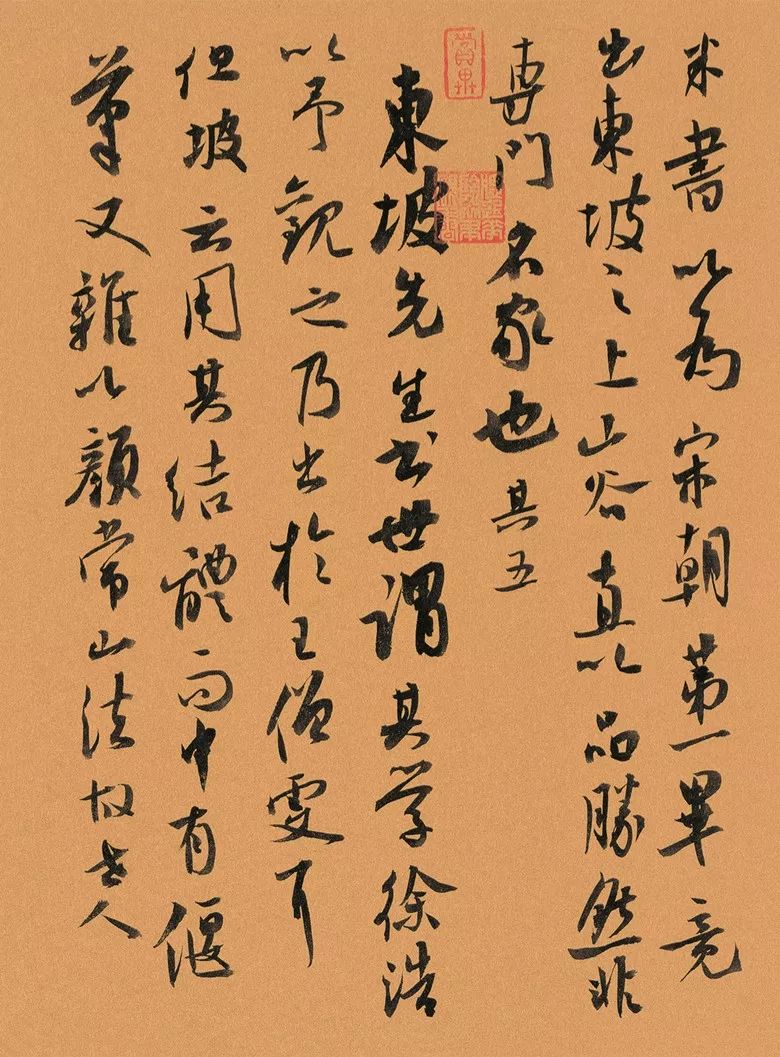 米書以為宋朝第一畢竟
出東坡之上山谷真以品勝然非
専門名家也其五
東坡先生書世謂其学徐浩
以予觀之乃出於王僧虔耳
但坡云用其结體而中有偃
筆又雜以顏常山法故世人